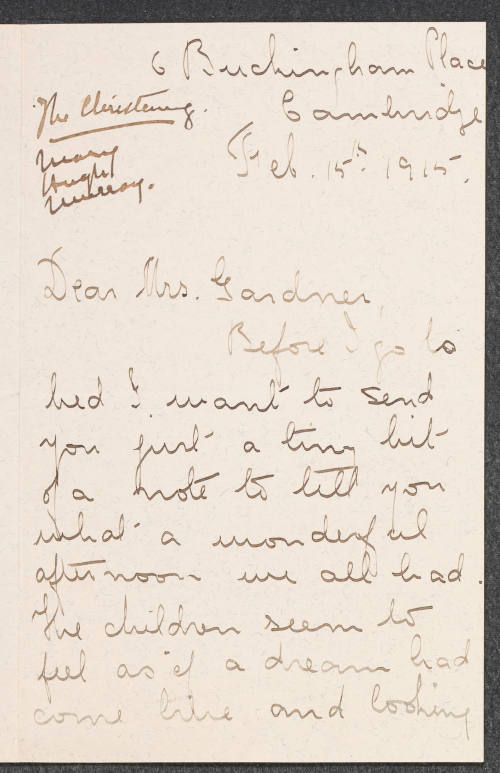 6 Buckingham Place
Cambridge
Feb. 15th 1915.
The Christening.
Mary
Hugh
Murray.
Dear Mrs. Gardner,
Before I go to
bed I want to send
you just a tiny bit
of a note to tell you
what a wonderful
afternoon we all had.
The children seem to
feel as if a dream had
come true and looking